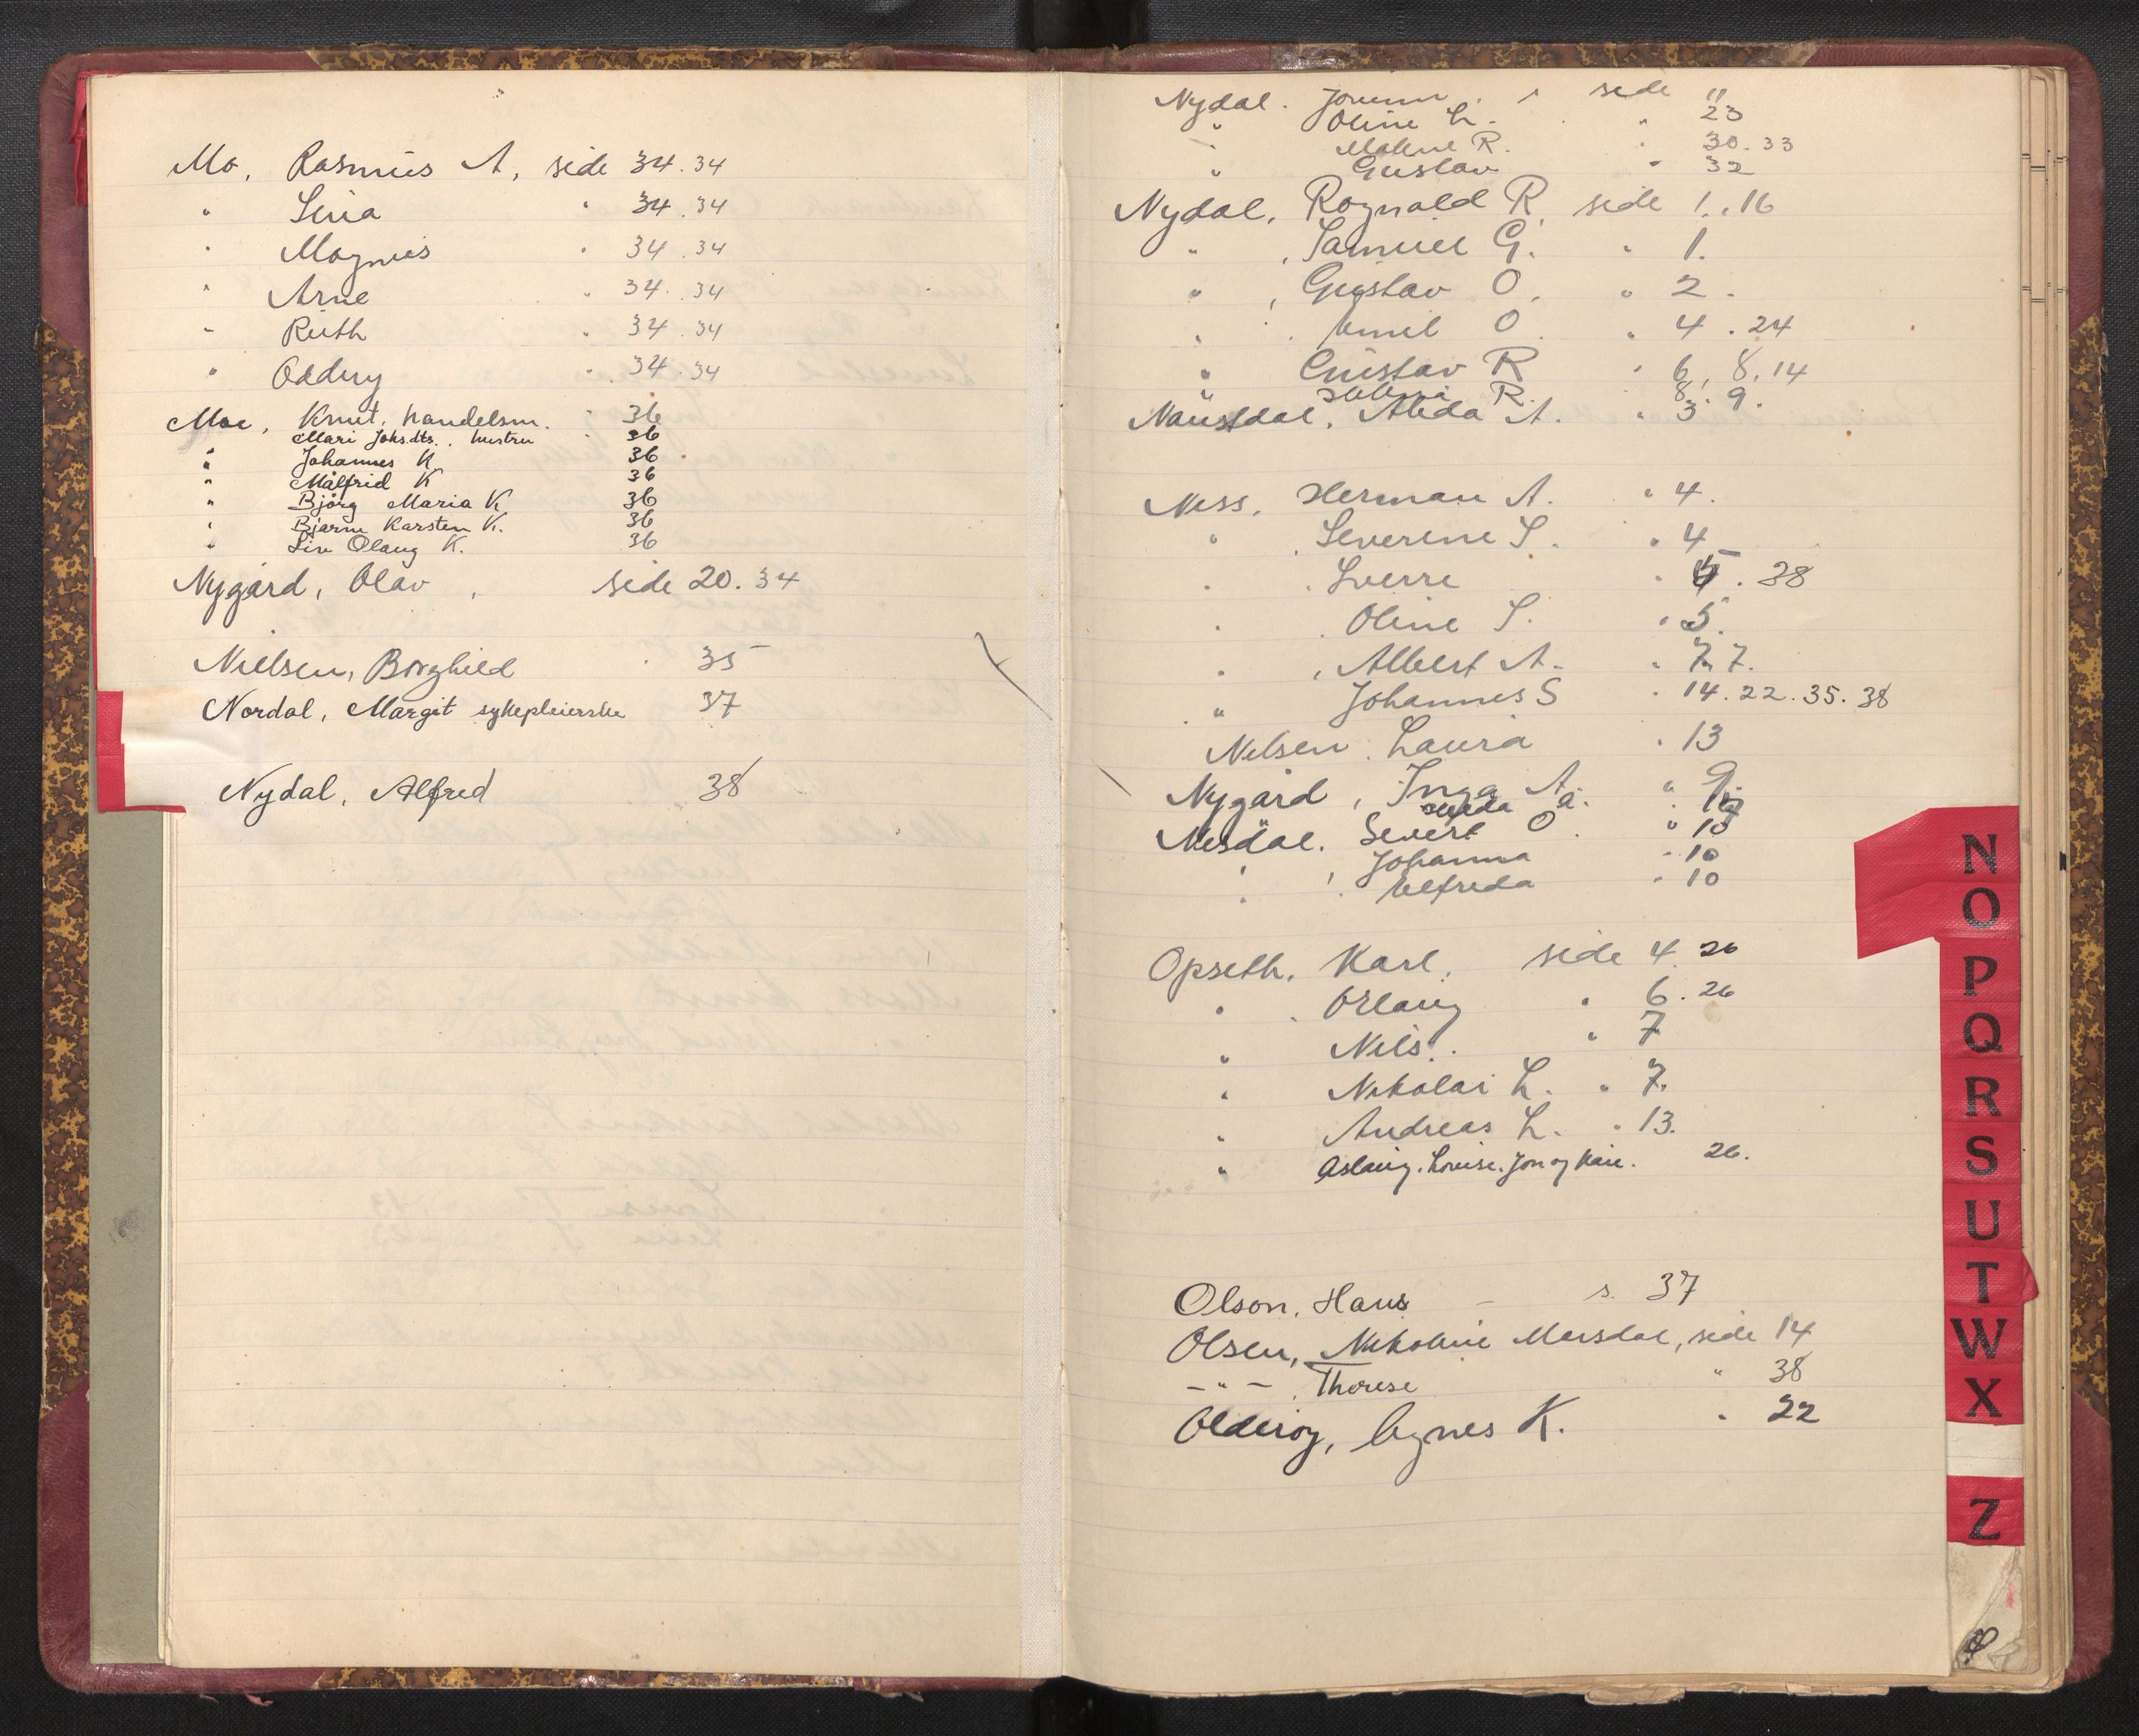 Mo, Rasmus A, side 34.34
" Lina " 34.34
" Magnus " 34.34
" Arne " 34.34
" Ruth " 34.34
" Oddny " 34.34
Moe, Knut, handelsm. " 36
Mari Johsdts., hustru " 36
" Johannes K 36
" Målfrid K 36
" Bjørg Maria K 36
" Bjarne Karsten K. 36
" Liv Olaug K. 36
Nygård, Olav, side 20.34
Nielsen, Borghild " 35
Nordal, Margit sykepleierske 37
Nydal, Alfred 38
Nydal. side "
" Oline L. " 23
" R. " 30.33
" Gustav " 32
Nydal, Ragnald R, side 1.,16
" , Samuel G. " 1.
" , Gustav O. " 2.
" . Emil O " 4.24
" Gustav R " 6, 8,14
" R. 8, 9.
Naustdal, Alida A. " 3
Ness, Herman A. " 4.
" , Severine S. " 4
" . Sverre " 5.38
" . Oline S. " 5.
" , Albert A. " 7.7.
" Johannes S " 14.22.35.38
Nelsen. Laura " 13
Nygård, Inga A. " 9.
a. "
Nesdal. Severt O. " 10
" , Johanna " 10
" . Alfreda " 10
Opseth. Karl. side 4. 26
" . Orlaug " 6.26
" Nils.. " 7
" Nikolai L. " 7.
" Andreas L. " 13.
" Aslaug. Louise. Jon og Kari. 26.
Olson, Hans - s. 37
Olsen, Nikoline Mersdal, side 14
-"- . Therese " 38
Olderøy, Agnes K. " 22
N
O
P
Q
R
S
U
T
W
X
Z